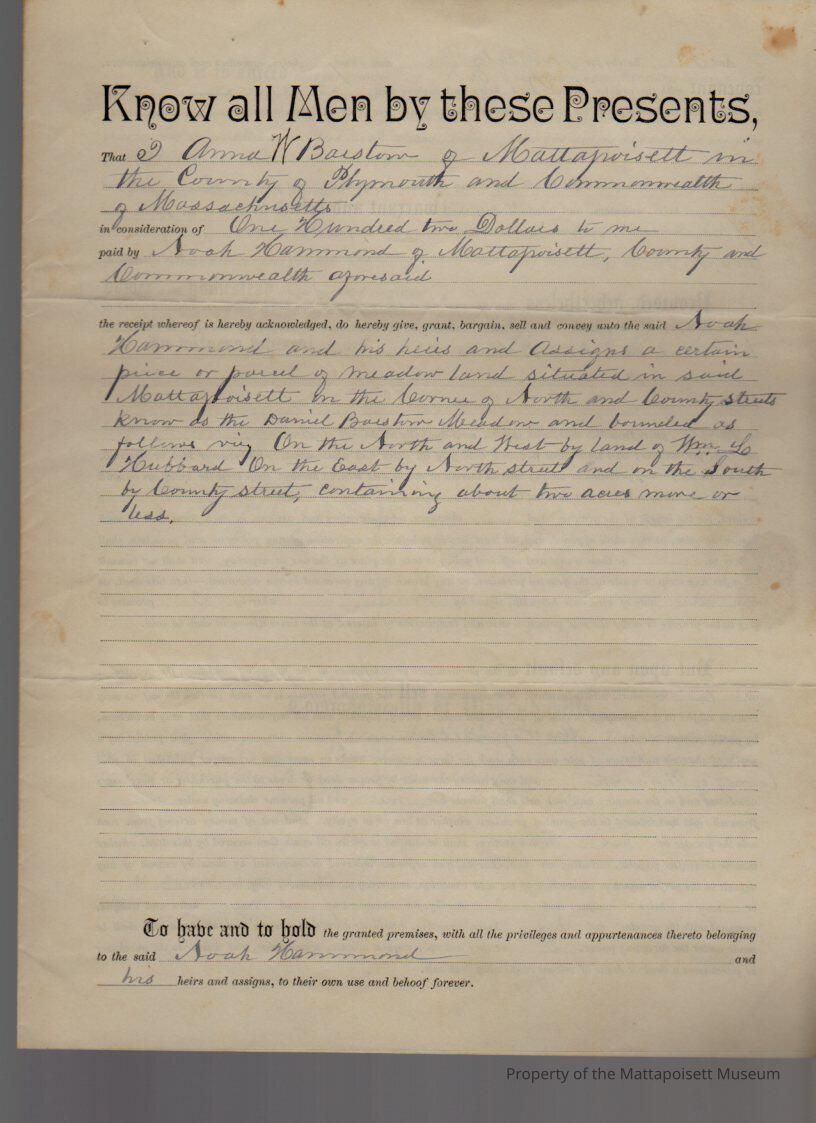 Know all Men by these Presents,
That I Anna W Barstow of Mattapoisett in
the County of Plymouth and Commonwealth
of Massachusetts
in consideration of One Hundred two Dollars to me
paid by Noah Hammond of Mattapoisett, County and
Commonwealth aforesaid
the receipt whereof is hereby acknowledged, do hereby give, grant, bargain, sell and convey unto the said Noah
Hammond and his heirs and Assigns a certain
piece or parcel of meadow land situated in said
Mattapoisett on the Corner of North and County streets
know as the Daniel Barstow Meadow and bounded as
follows viz On the North and West by land of Wm L
Hubbard On the East by North street and on the South
by County street, containing about two acres more or
less.
To have and to hold the granted premises, with all the privileges and appurtenances thereto belonging
to the said Noah Hammond and
his heirs and assigns, to their own use and behoof forever.
Property of the Mattapoisett Museum